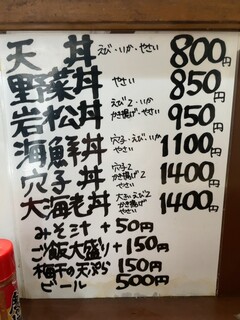 天丼 えび・いか・やさい 800円
野菜丼 やさい 850円
岩松丼 えび2・いか かき揚げ・やさい 950円
海鮮丼 穴子・えび・いか やさい 1100円
穴子丼 穴子2 かき揚げ・やさい 1400円
大海老丼 大えび2 かき揚げ やさい 1400円
みそ汁 +50円
ご飯大盛り +150円
梅干の天ぷら 150円
ビール 500円